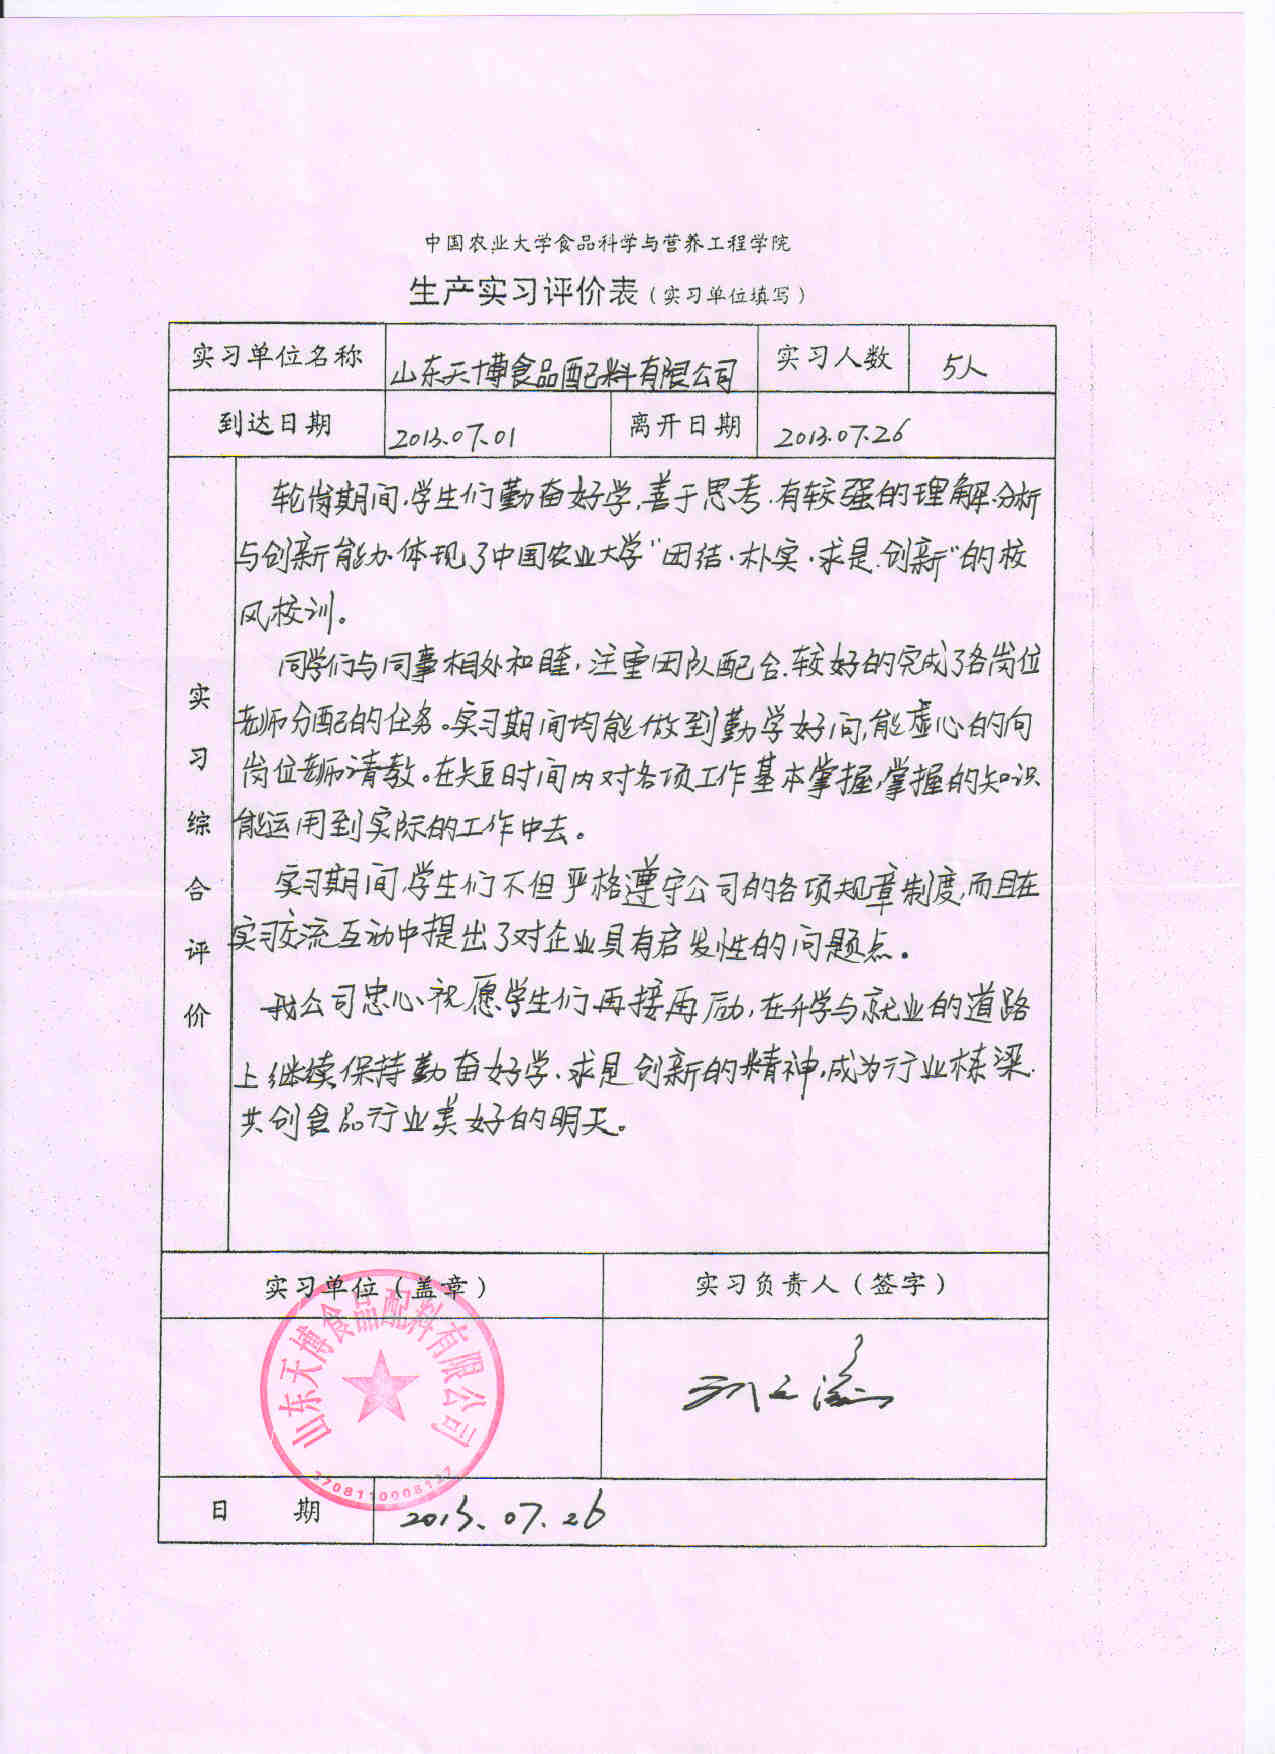 中国农业大学食品科学与营养工程学院
生产实习评价表（实习单位填写）
实习单位名称 山东天博食品配料有限公司 实习人数 5人
到达日期 2013.07.01 离开日期 2013.07.26
实习综合评价
轮岗期间，学生们勤奋好学，善于思考，有较强的理解、分析
与创新能力，体现了中国农业大学“团结·朴实·求是·创新”的校
风校训。
同学们与同事相处和睦，注重团队配合，较好的完成了各岗位
老师分配的任务。实习期间均能做到勤学好问，能虚心的向
岗位老师请教。在短时间内对各项工作基本掌握，掌握的知识
能运用到实际的工作中去。
实习期间，学生们不但严格遵守公司的各项规章制度，而且在
实习交流互动中提出了对企业具有启发性的问题点。
我公司忠心祝愿学生们再接再励，在升学与就业的道路
上继续保持勤奋好学、求是创新的精神，成为行业栋梁，
共创食品行业美好的明天。
实习单位（盖章） 实习负责人（签字）
山东天博食品配料有限公司
3708110008127
日 期 2013.07.26